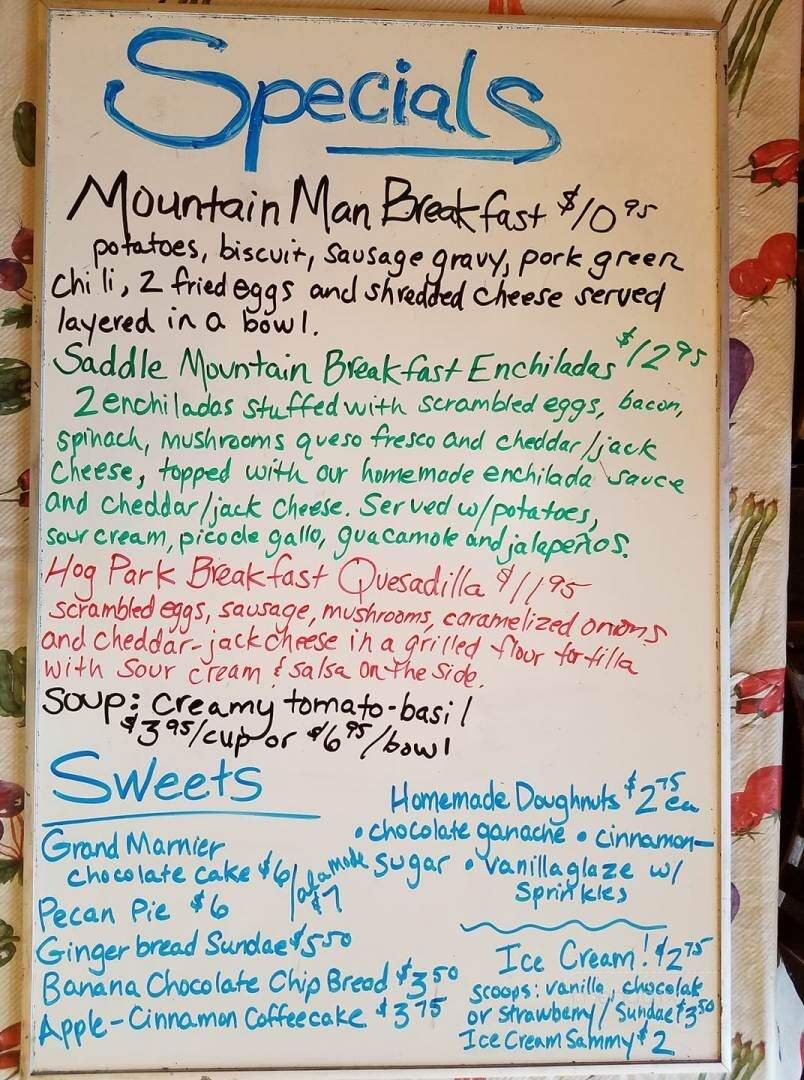 Specials
Mountain Man Breakfast $10.95
potatoes, biscuit, sausage gravy, pork green
chili, 2 fried eggs and shredded cheese served
layered in a bowl.
Saddle Mountain Breakfast Enchiladas $12.95
2 enchiladas stuffed with scrambled eggs, bacon,
spinach, mushrooms queso fresco and cheddar/jack
cheese, topped with our homemade enchilada sauce
and cheddar/jack cheese. Served w/potatoes,
sour cream, pico de gallo, guacamole and jalapeños.
Hog Park Breakfast Quesadilla $11.95
scrambled eggs, sausage, mushrooms, caramelized onions
and cheddar-jack cheese in a grilled flour tortilla
with sour cream & salsa on the side.
Soup: creamy tomato-basil
$3.95/cup or $6.95/bowl
Sweets
Grand Marnier
chocolate cake $6/
Pecan Pie $6
a la mode
$7
Gingerbread Sundae $5.50
Banana Chocolate Chip Bread $3.50
Apple-Cinnamon Coffeecake $3.75
Homemade Doughnuts $2.75 ea
• chocolate ganache • cinnamon-
sugar • vanilla glaze w/
sprinkles
Ice Cream! $2.75
scoops: vanilla, chocolate
or strawberry / Sundae $3.50
Ice Cream Sammy $2